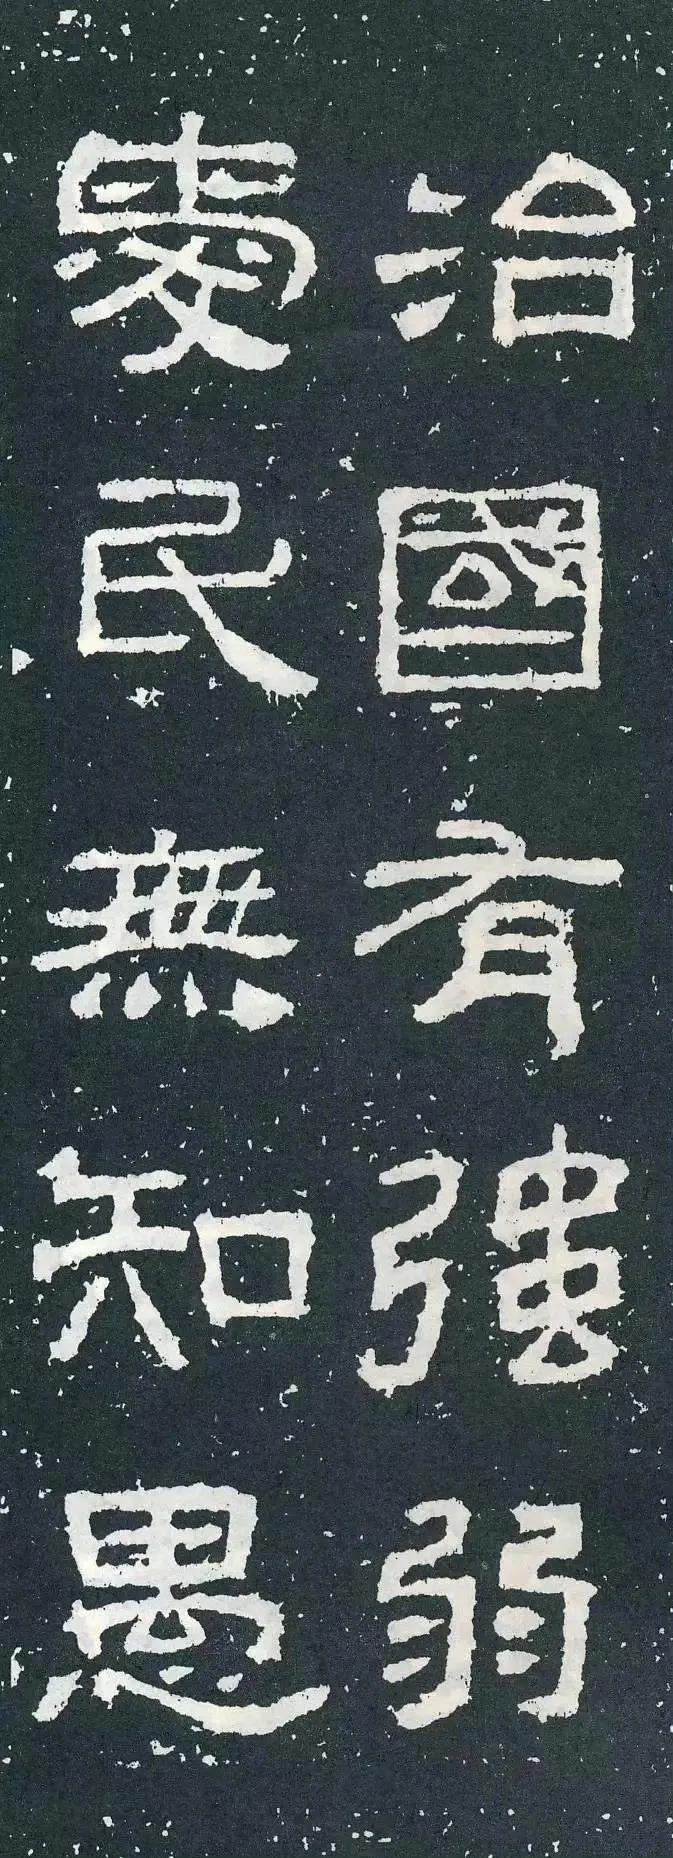 治國有強弱
愛民無知愚